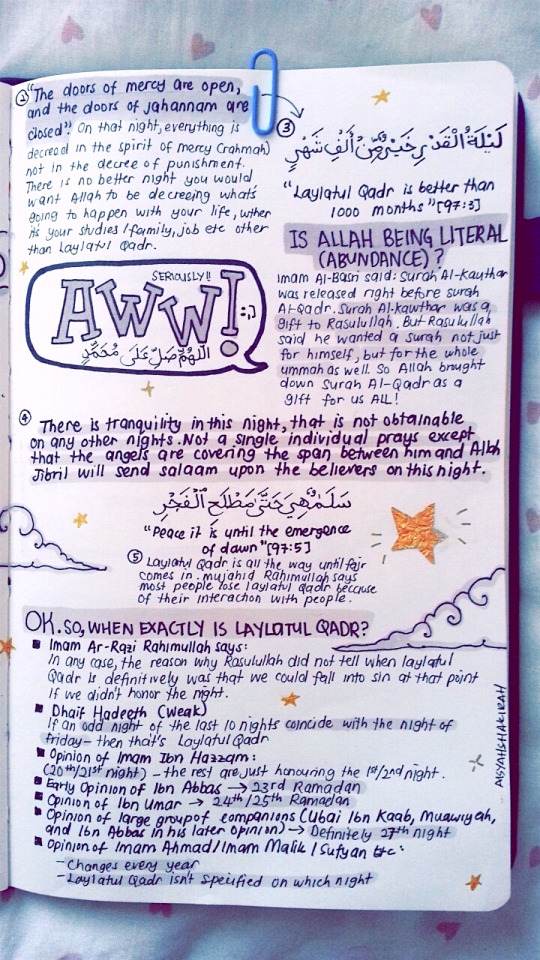 ② "The doors of mercy are open,
and the doors of jahannam are
closed". On that night, everything is
decreed in the spirit of mercy (rahmah)
not in the decree of punishment.
There is no better night you would
want Allah to be decreeing what's
going to happen with your life, wther
its your studies/family, job etc other
than Laylatul Qadr.
SERIOUSLY!!
AWW! :,)
اللهم صل على محمد
③
لَيْلَةُ الْقَدْرِ خَيْرٌ مِّنْ أَلْفِ شَهْرٍ
"Laylatul Qadr is better than
1000 months" [97:3]
IS ALLAH BEING LITERAL
(ABUNDANCE)?
Imam Al-Basri said: Surah Al-Kauthar
was released right before surah
Al-Qadr. Surah Al-kawthar was a
gift to Rasulullah. But Rasulullah
said he wanted a surah not just
for himself, but for the whole
ummah as well. So Allah brought
down Surah Al-Qadr as a
gift for us ALL!
④ There is tranquility in this night, that is not obtainable
on any other nights. Not a single individual prays except
that the angels are covering the span between him and Allah
Jibril will send salaam upon the believers on this night.
سَلَٰمٌ هِيَ حَتَّىٰ مَطْلَعِ الْفَجْرِ
"Peace it is until the emergence
of dawn" [97:5]
⑤ Laylatul Qadr is all the way until fejr
comes in. mujahid Rahimullah says
most people lose laylatul qadr because
of their interaction with people.
OK. SO, WHEN EXACTLY IS LAYLATUL QADR?
▪ Imam Ar-Razi Rahimullah says:
In any case, the reason why Rasulullah did not tell when laylatul
Qadr is definitively was that we could fall into sin at that point
if we didn't honor the night.
▪ Dhaif Hadeeth (weak)
If an odd night of the last 10 nights coincide with the night of
friday - then that's Laylatul Qadr
▪ Opinion of Imam Ibn Hazzam:
(20th/21st night) - the rest are just honouring the 1st/2nd night.
▪ Early Opinion of Ibn Abbas → 23rd Ramadan
▪ Opinion of Ibn Umar → 24th/25th Ramadan
▪ Opinion of large group of companions (Ubai Ibn Kaab, Muawiyah,
and Ibn Abbas in his later opinion) → Definitely 27th night
▪ Opinion of Imam Ahmad/Imam Malik/Sufyan etc:
- Changes every year
- Laylatul Qadr isn't specified on which night
AISYAHSHAKIRAH